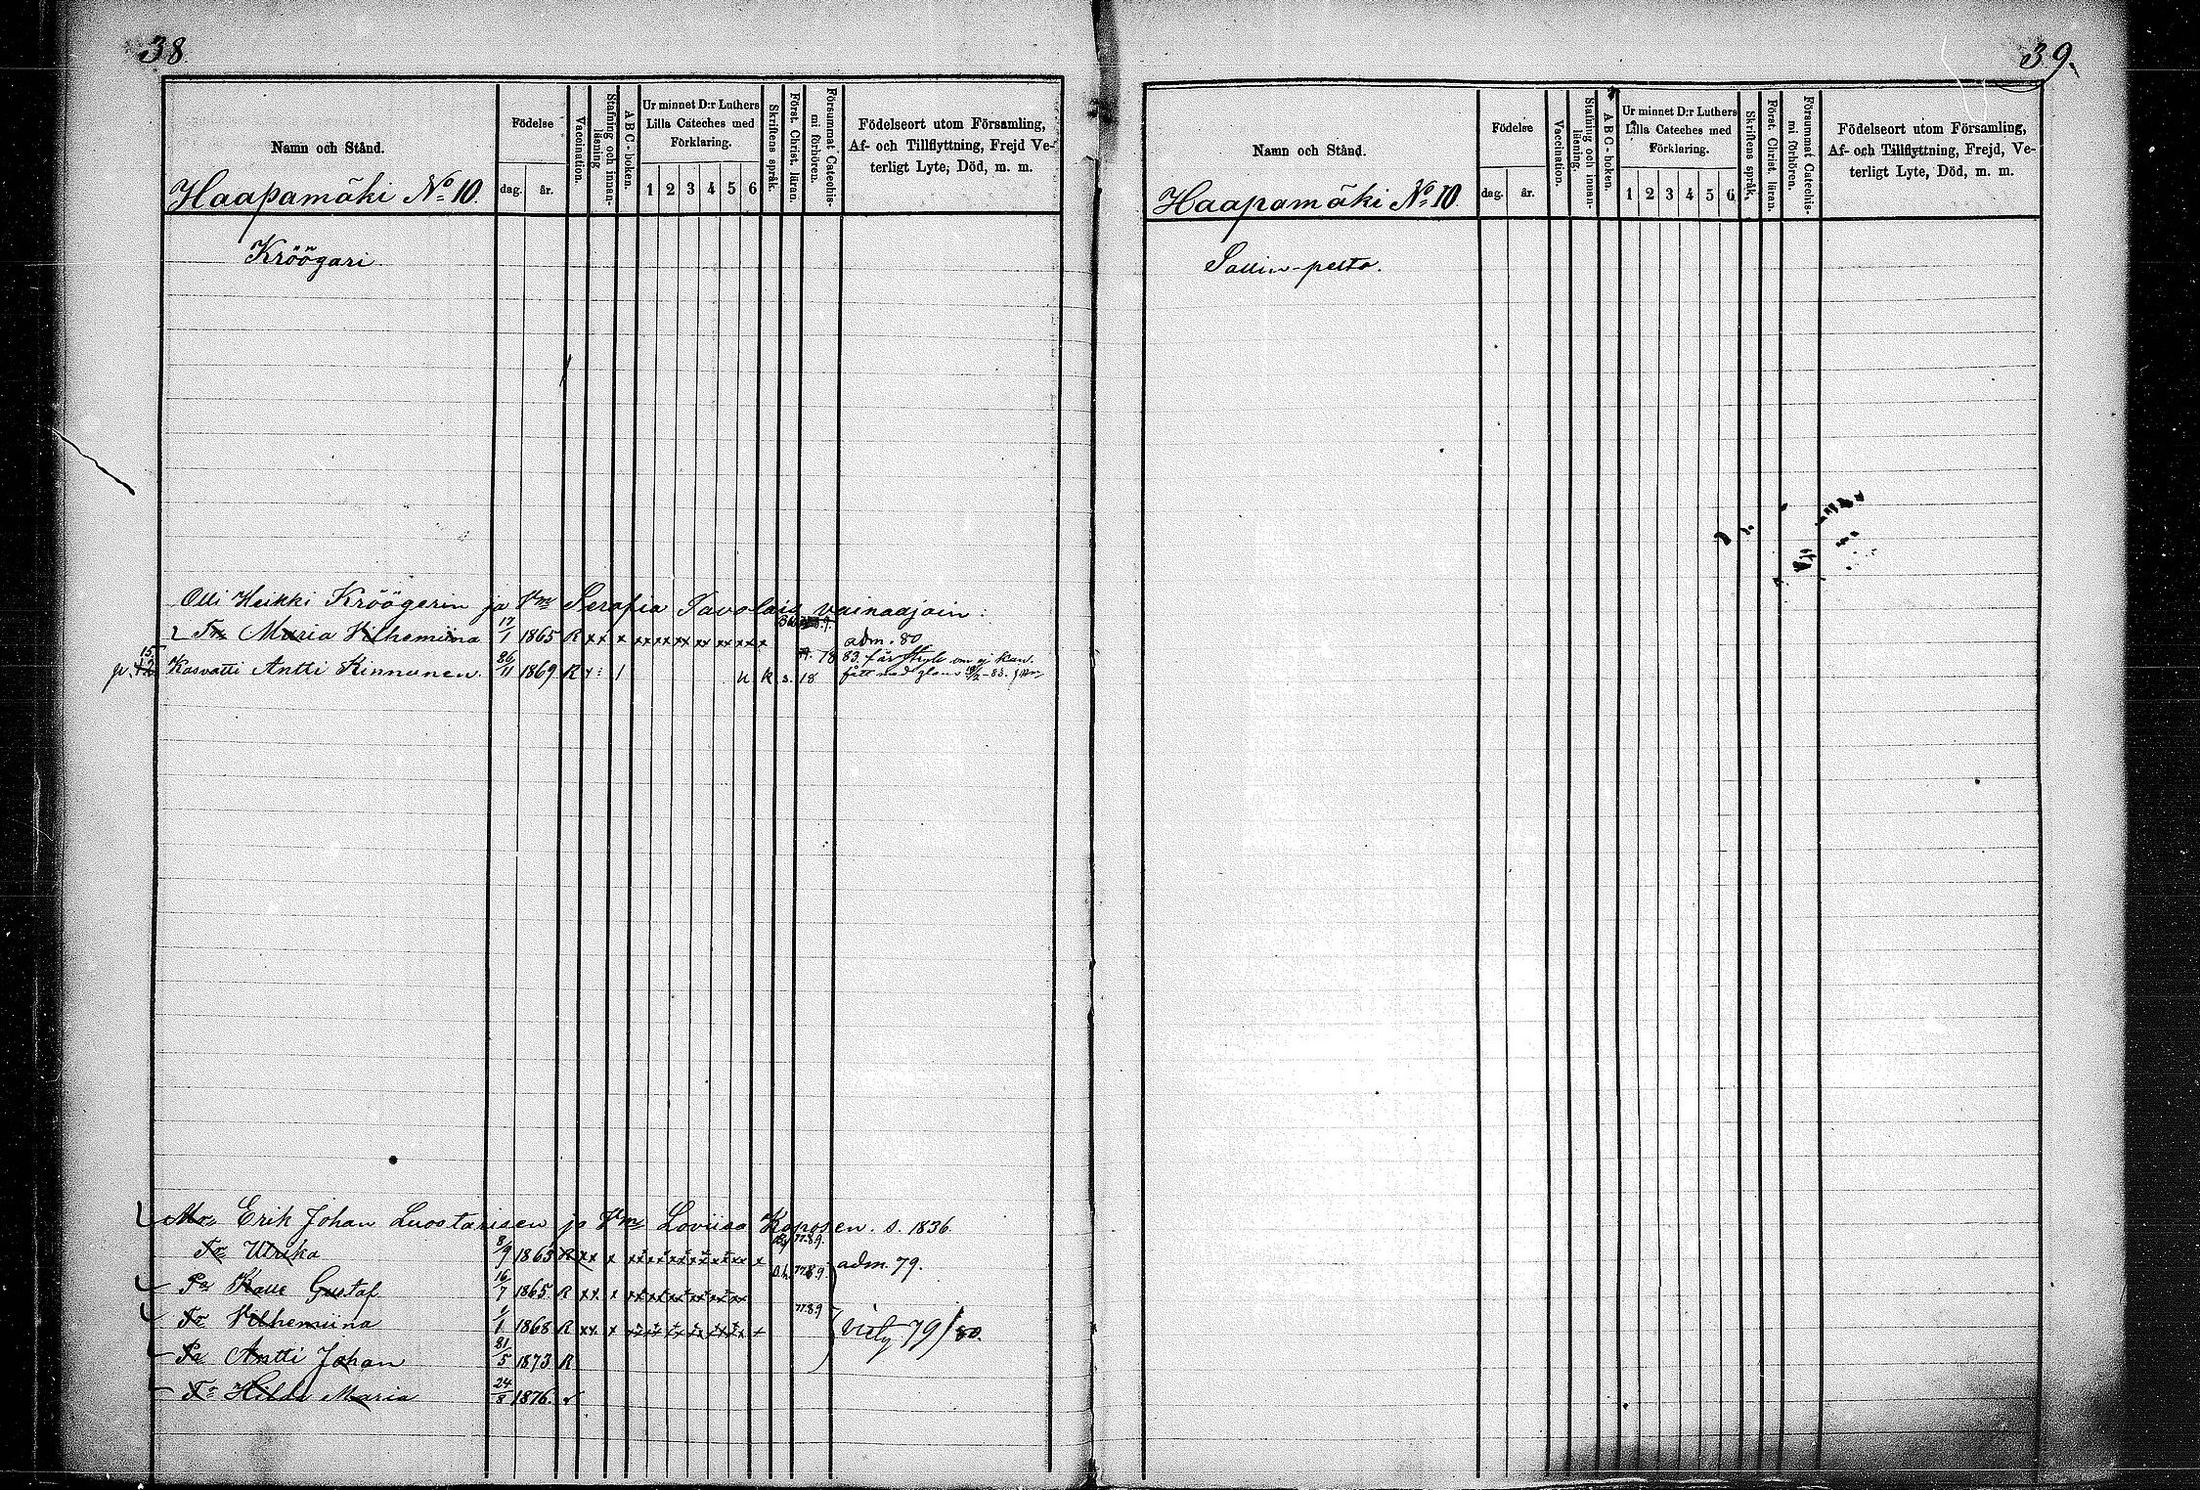 38
Namn och Stånd.
Födelse
dag. år.
Vaccination.
Stafning och innanläsning
A B C - boken.
Ur minnet D:r Luthers
Lilla Cateches med
Förklaring.
1 2 3 4 5 6
Skriftens språk.
Först. Christ. läran.
Försummat Catechismi förhören.
Födelseort utom Församling,
Af- och Tillflyttning, Frejd Ve-
terligt Lyte, Död, m. m.
Haapamäki No 10.
Kröögari
Olli Heikki Kröögerin ja Vm Serafia Pavolais vainaajain:
Tr Maria Vilhemiina 17/1 1865 R xx x xx xx xx xx xx xx x adm. 80
Kasvatti Antti Kinnunen. 26/11 1869 R 1 u k s. 18
Mo Erik Johan Luostarisen ja Vm Loviisa Koposen. s. 1836
Tr Ulrika 8/9 1863 R xx x adm. 79.
Pa Kalle Gustaf 16/7 1865 R xx x
Tr Vilhemiina 1/1 1868 R xx x 79/80.
Pa Antti Johan 21/5 1873 R
Tr Hilda Maria 24/8 1876.
39.
Namn och Stånd.
Födelse
dag. år.
Vaccination.
Stafning och innanläsning.
A B C - boken.
Ur minnet D:r Luthers
Lilla Cateches med
Förklaring.
1 2 3 4 5 6
Skriftens språk,
Först. Christ. läran.
Försummat Catechismi förhören.
Födelseort utom Församling,
Af- och Tillflyttning, Frejd, Ve-
terligt Lyte, Död, m. m.
Haapamäki No 10.